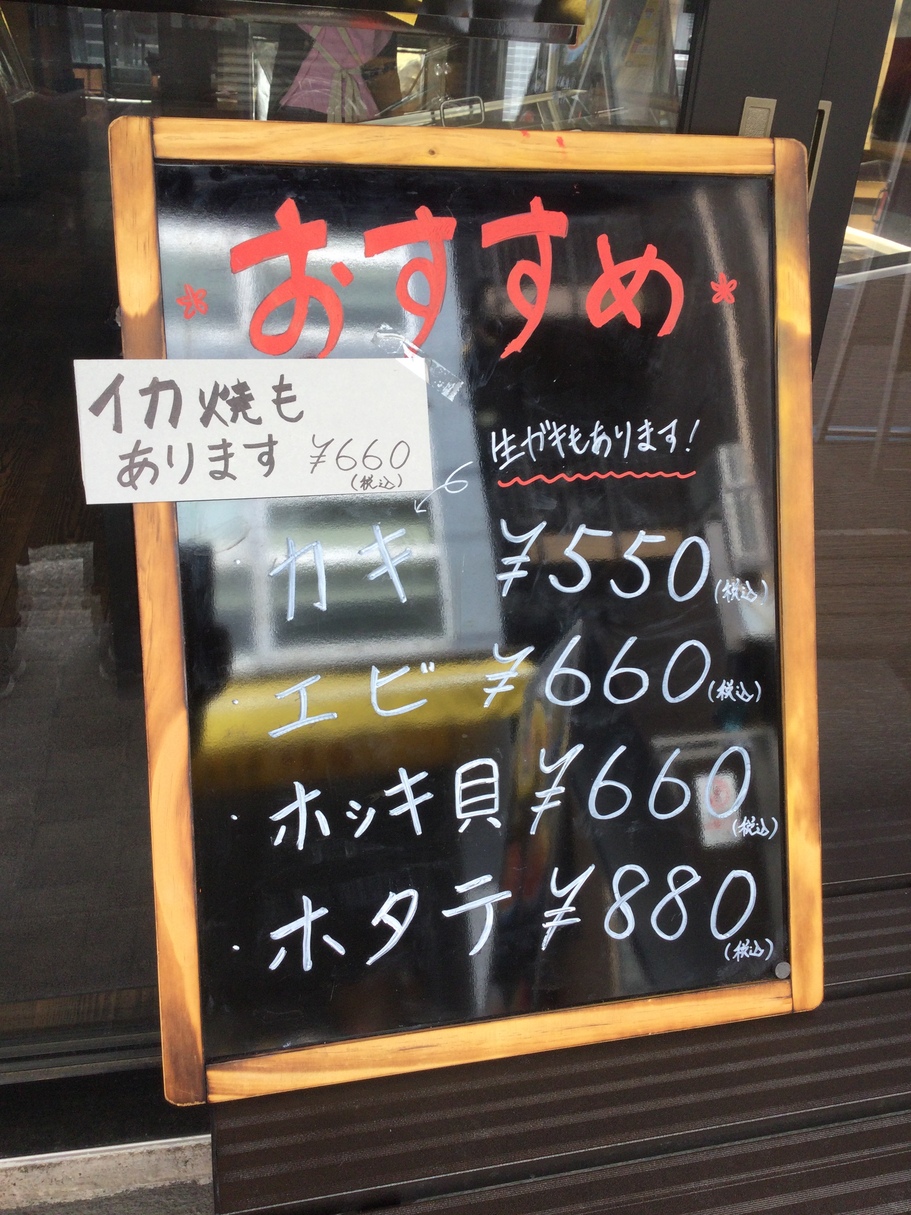 おすすめ
イカ焼も
あります ¥660
(税込)
生ガキもあります!
・カキ ¥550(税込)
・エビ ¥660(税込)
・ホッキ貝 ¥660
(税込)
・ホタテ ¥880
(税込)